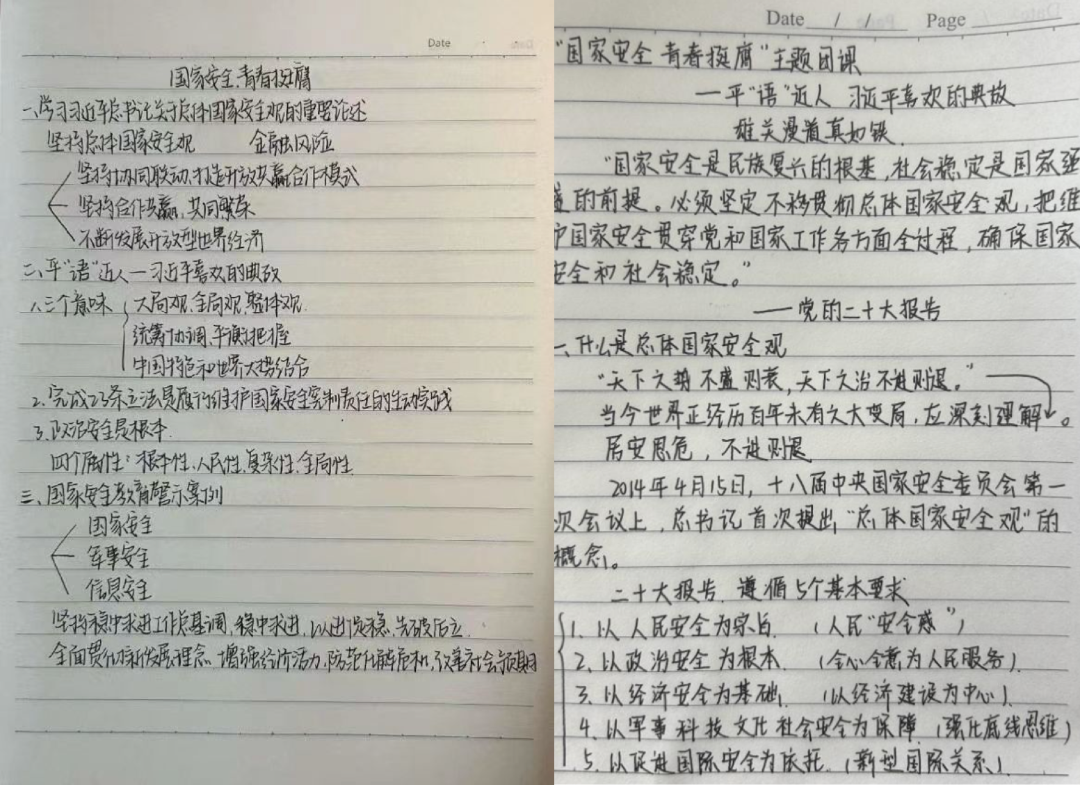 Date
国家安全,青春挺膺
一、学习习近平总书记关于总体国家安全观的重要论述
坚持总体国家安全观 金融风险
坚持协同联动,打造开放共赢合作模式
坚持合作共赢,共同繁荣
不断发展开放型世界经济
二、平“语”近人—习近平喜欢的典故
1.三个意味
大局观,全局观,整体观.
统筹协调,平衡把握
中国特色和世界大势结合
2.完成23条立法是履行维护国家安全宪制责任的生动实践
3.政治安全是根本.
四个属性:根本性,人民性,复杂性,全局性
三、国家安全教育警示案例
国家安全
军事安全
信息安全
坚持稳中求进工作总基调,稳中求进,以进促稳,先破后立.
全面贯彻新发展理念,增强经济活力,防范化解危机,改善社会预期
Date / / Page
“国家安全 青春挺膺”主题团课
—平“语”近人 习近平喜欢的典故
雄关漫道真如铁
“国家安全是民族复兴的根基,社会稳定是国家强
盛的前提。必须坚定不移贯彻总体国家安全观,把维
护国家安全贯穿党和国家工作各方面全过程,确保国家
安全和社会稳定。”
——党的二十大报告
一、什么是总体国家安全观
“天下之势不盛则衰,天下之治不进则退。”
当今世界正经历百年未有之大变局,应深刻理解。
居安思危,不进则退
2014年4月15日,十八届中央国家安全委员会第一
次会议上,总书记首次提出“总体国家安全观”的
概念。
二十大报告.遵循5个基本要求
1.以人民安全为宗旨 (人民“安全感”)
2.以政治安全为根本 (全心全意为人民服务).
3.以经济安全为基础 (以经济建设为中心)
4.以军事科技文化社会安全为保障 (强化底线思维)
5.以促进国际安全为依托 (新型国际关系)